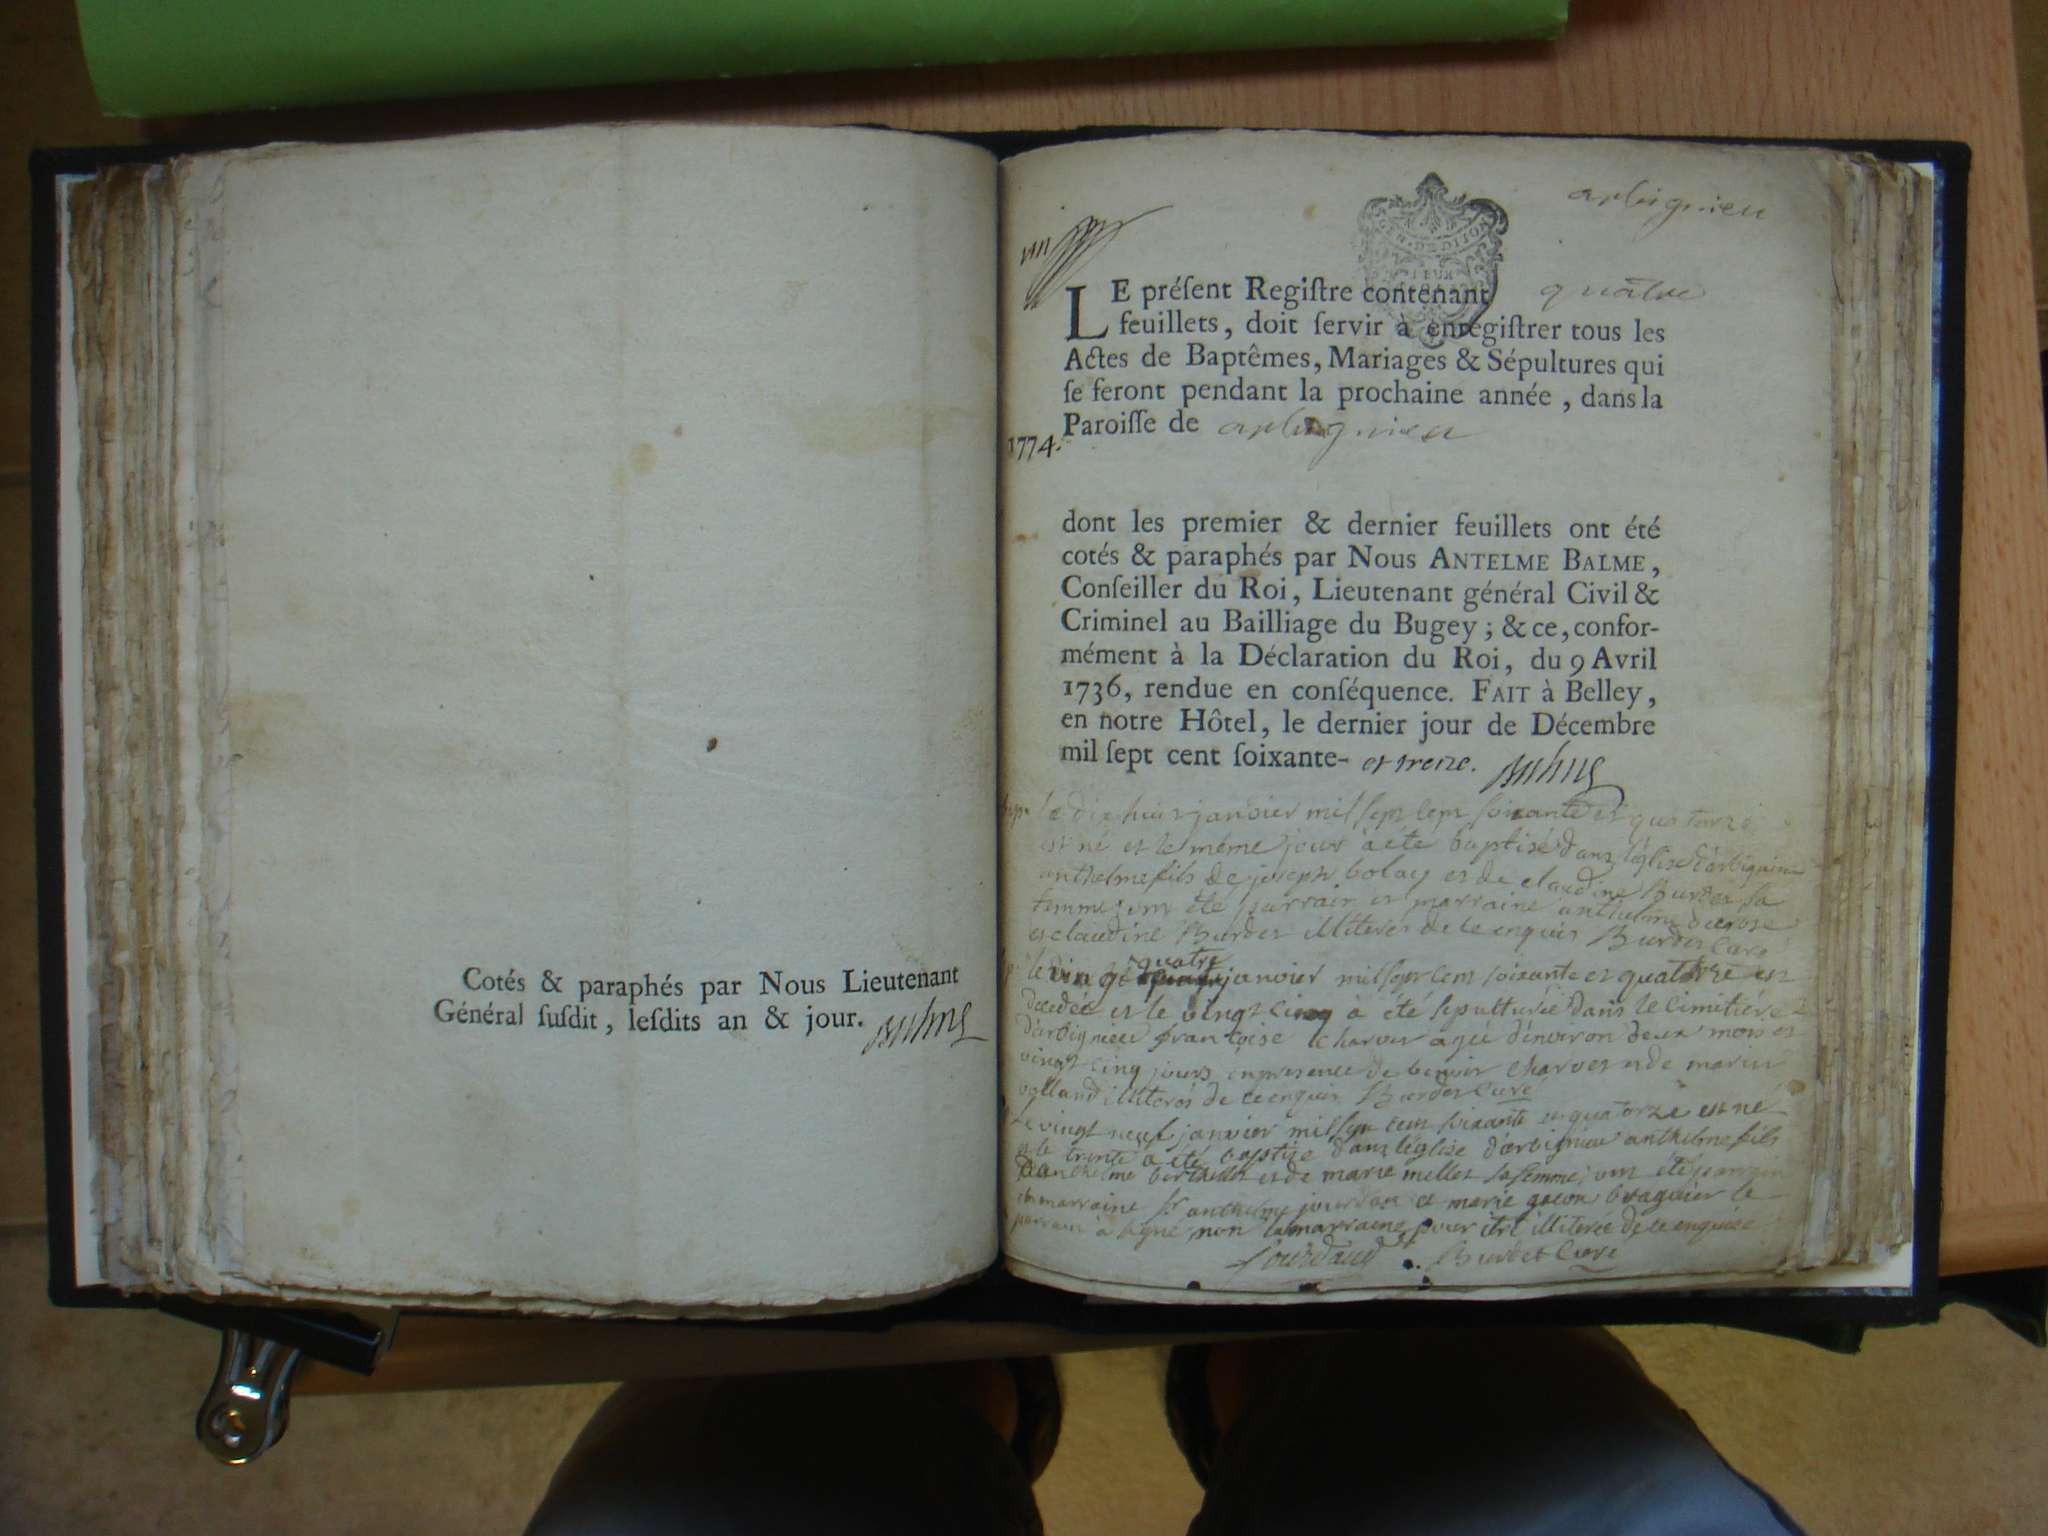 Cotés & paraphés par Nous Lieutenant
Général ſuſdit, leſdits an & jour.
arbignieu
GEN. DE DIJON
LE préſent Regiſtre contenant quatre
feuillets, doit ſervir à enregiſtrer tous les
Actes de Baptêmes, Mariages & Sépultures qui
ſe feront pendant la prochaine année, dans la
Paroiſſe de arbignieu
1774.
dont les premier & dernier feuillets ont été
cotés & paraphés par Nous ANTELME BALME,
Conſeiller du Roi, Lieutenant général Civil &
Criminel au Bailliage du Bugey; & ce, confor-
mément à la Déclaration du Roi, du 9 Avril
1736, rendue en conſéquence. FAIT à Belley,
en notre Hôtel, le dernier jour de Décembre
mil ſept cent ſoixante- et treize.
le dix huit janvier mil sept cent soixante et quatorze
est né et le même jour a été baptisé dans l'église d'arbignieu
anthelme fils de joseph bolay et de claudine Burdet sa
femme; ont été parrain et marraine anthelme
et claudine Burdet illiterés de ce enquis Burdet Curé
le vingt quatre janvier mil sept cent soixante et quatorze est
decedée et le vingt cinq à été sepulturée dans le cimitière
d'arbignieu françoise charvet agée d'environ deux mois et
vingt cinq jours, en presence de benoit charvet et de marin
volland illiterés de ce enquis Burdet Curé
le vingt neuf janvier mil sept cent soixante et quatorze est né
et le trente a été baptisé dans l'église d'arbignieu anthelme fils
d'anthelme berthellet et de marie mellet sa femme; ont été parrain
et marraine sr anthelme jourdan et marie le
parrain à signé non la marraine pour être illiterée de ce enquise
Jourdand Burdet Curé